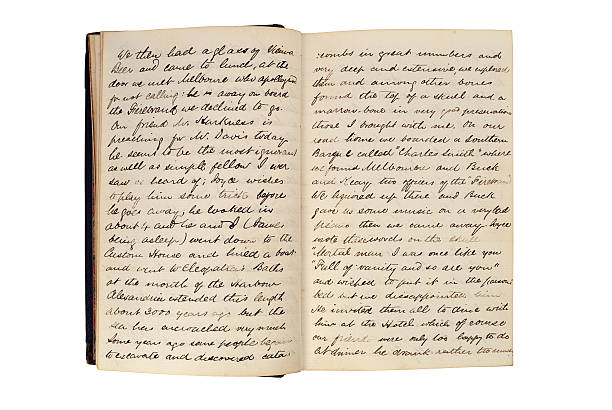 We then had a glass of Vienna
Beer and came to lunch, at the
door we met Melbourne who apologized
for not calling: he is away on board
the Firebrand we declined to go.
Our friend Mr. Harkness is
preaching for Mr. Davis today
he seems to be the most ignorant
as well as simple fellow I ever
saw or heard of; Joyce wishes
to play him some tricks before
he goes away; he looked in
about 4 and he and I (James
being asleep) went down to the
Custom House and hired a boat
and went to Cleopatra's Baths
at the mouth of the Harbour
Alexandria extended this length
about 3000 years ago but the
sea has encroached very much
Some years ago some people began
to excavate and discovered cata-
:combs in great numbers and
very deep and extensive, we explored
them and among other bones
found the top of a skull and a
marrow bone in very good preservation
those I brought with me. On our
road home we boarded a Southern
Barque called "Charles Smith" where
we found Melbourne and Buck
and Keary two officers of the
We liquored up there and Buck
gave us some music on a very bad
piano then we came away. Joyce
wrote these words on the skull
"Mortal man I was once like you
"Full of vanity and so are you"
and wished to put it in the
bed but we disappointed him
He invited them all to dine with
him at the Hotel which of course
our friends were only too happy to do
At dinner he drank rather too much